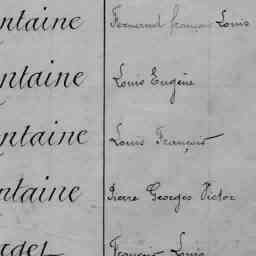 ntaine Fernand françois Louis
ntaine Louis Eugène
ntaine Louis François
ntaine Pierre Georges Victor
François Louis